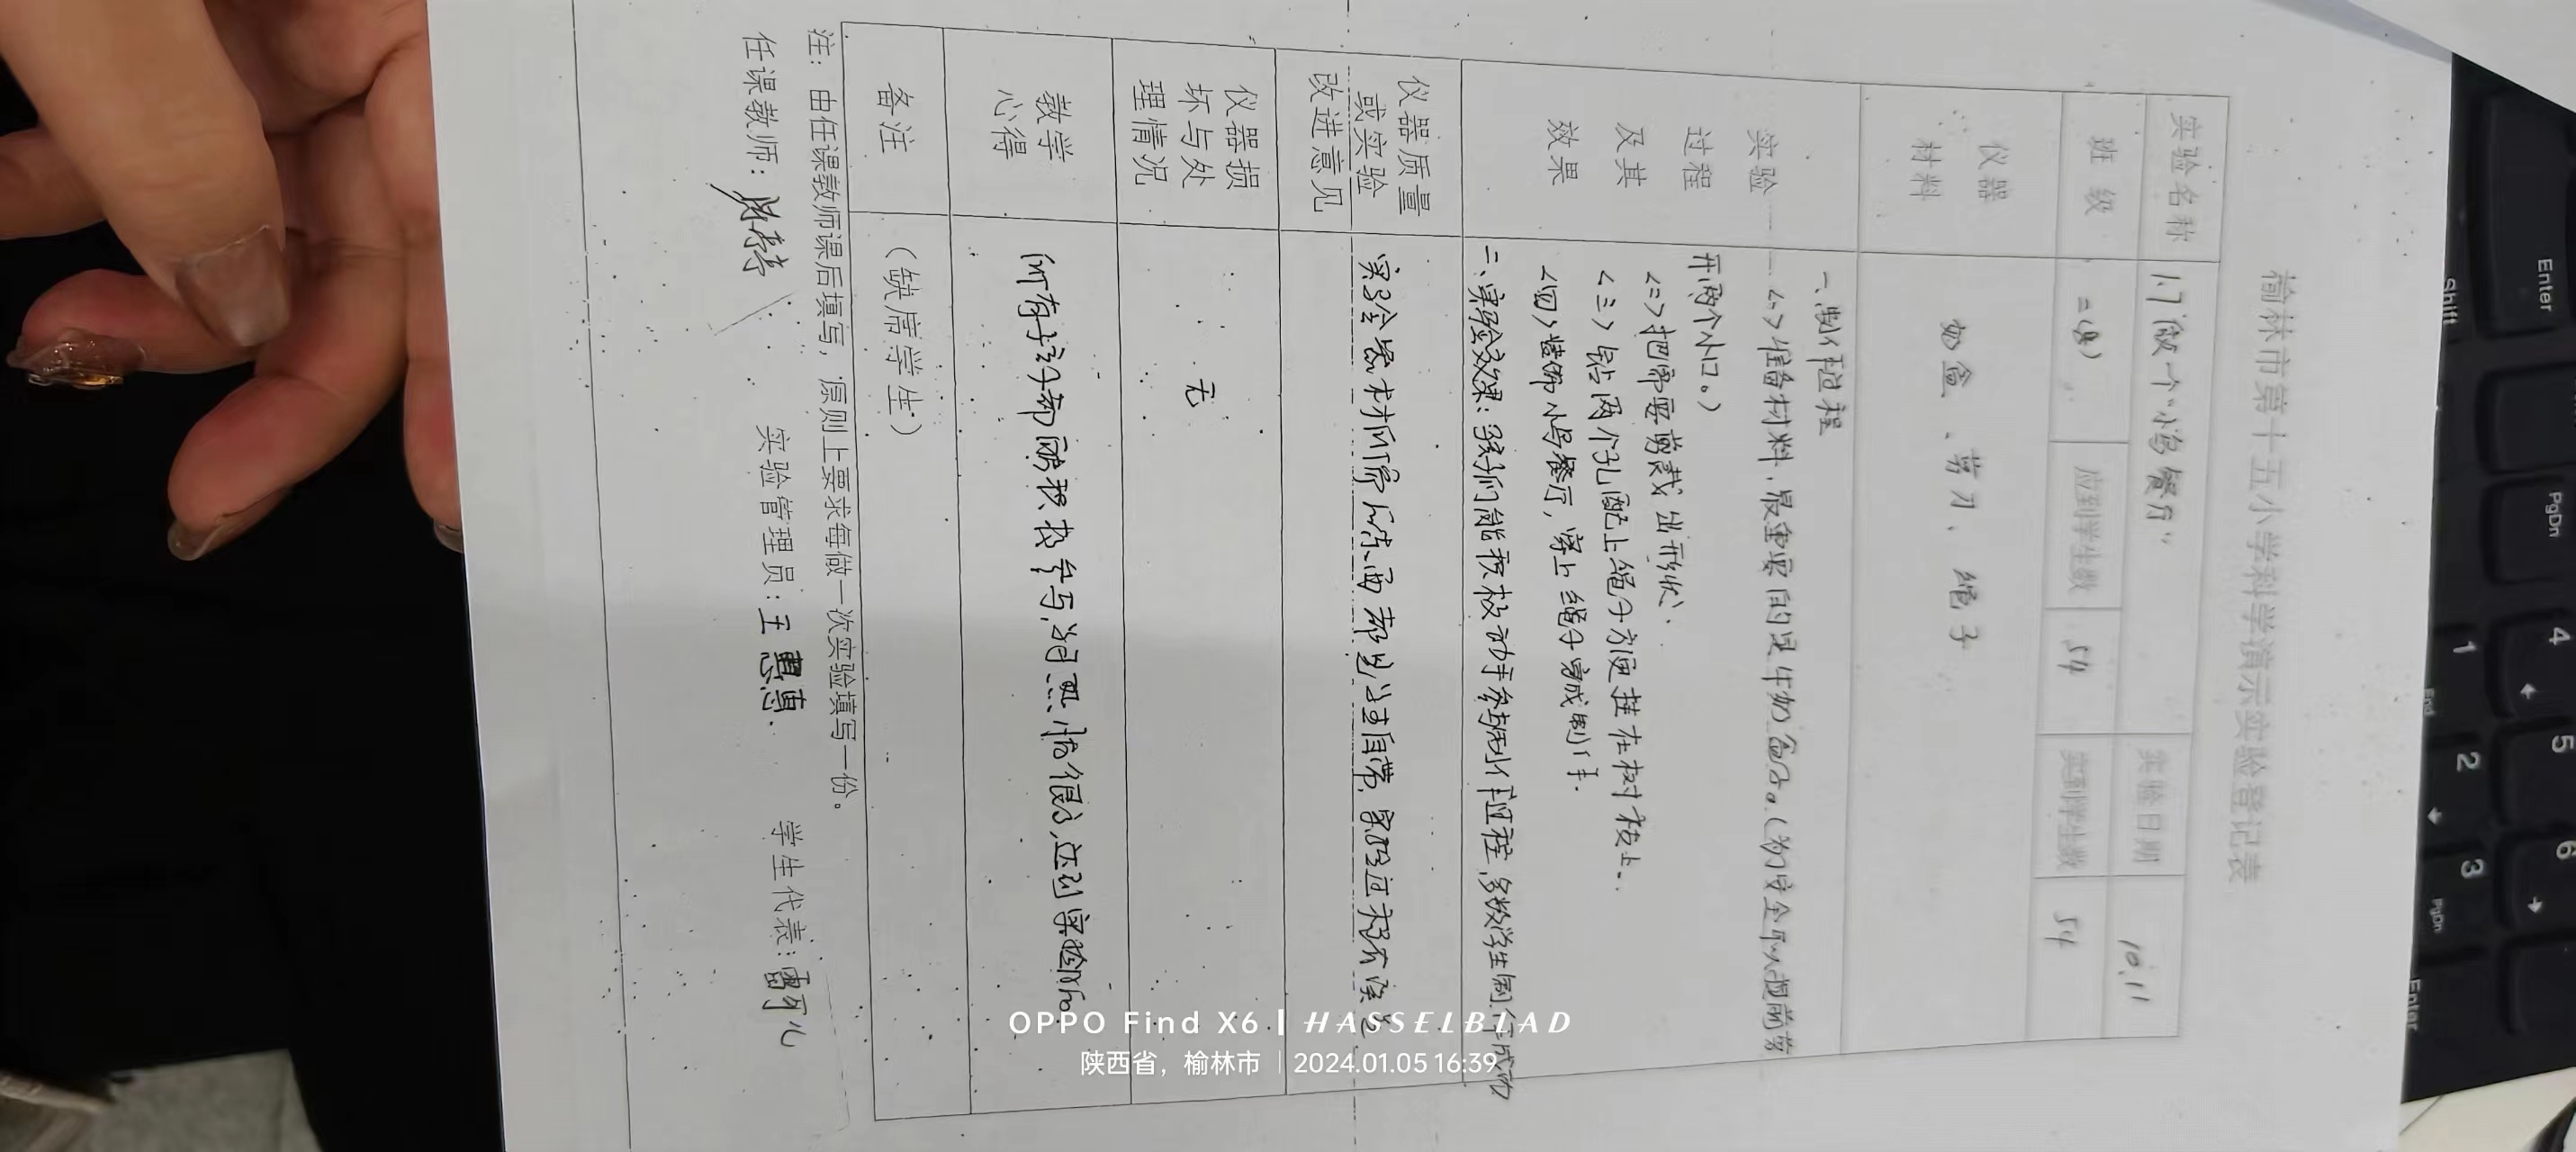 榆林市第十五小学科学演示实验登记表
实验名称 1.7做个“小鸟餐厅” 实验日期 10.11
班级 二(8) 应到学生数 54 实到学生数 54
仪器材料 奶盒、剪刀、绳子
实验过程及其效果
一、制作过程
<一>准备材料,最重要的是牛奶盒子。(为了安全可以提前剪
开两个小口。)
<二>把需要剪裁出形状.
<三>钻两个孔配上绳子方便挂在树枝上.
<四>装饰小鸟餐厅,穿上绳子完成制作.
二、实验效果:孩子们能积极动手参与制作过程,多数学生制作成功
仪器质量或实验改进意见
实验器材
都是
自带,
仪器损坏与处理情况 无
教学心得 所有孩子都能积极参与,
备注 (缺席学生)
注:由任课教师课后填写,原则上要求每做一次实验填写一份。
任课教师: 实验管理员:王惠惠 学生代表:
OPPO Find X6 | HASSELBLAD
陕西省,榆林市 | 2024.01.05 16:39
Enter
Shift
PgDn
4
1
End
5
2
6
3
PgDn
Enter